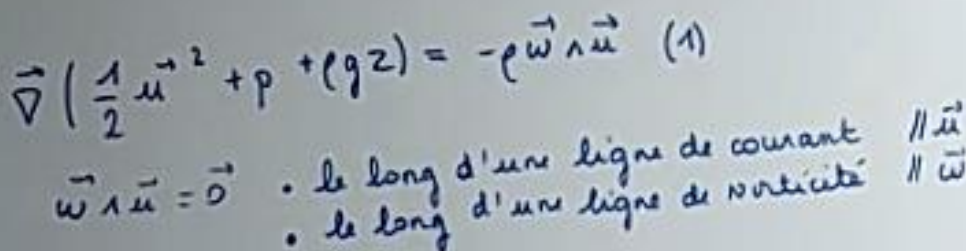 ∇⃗ ( 1/2 u⃗² + p + ρgz) = -ρω⃗ ∧ u⃗ (1)
ω⃗ ∧ u⃗ = 0⃗ • le long d'une ligne de courant // u⃗
• le long d'une ligne de vorticité // ω⃗